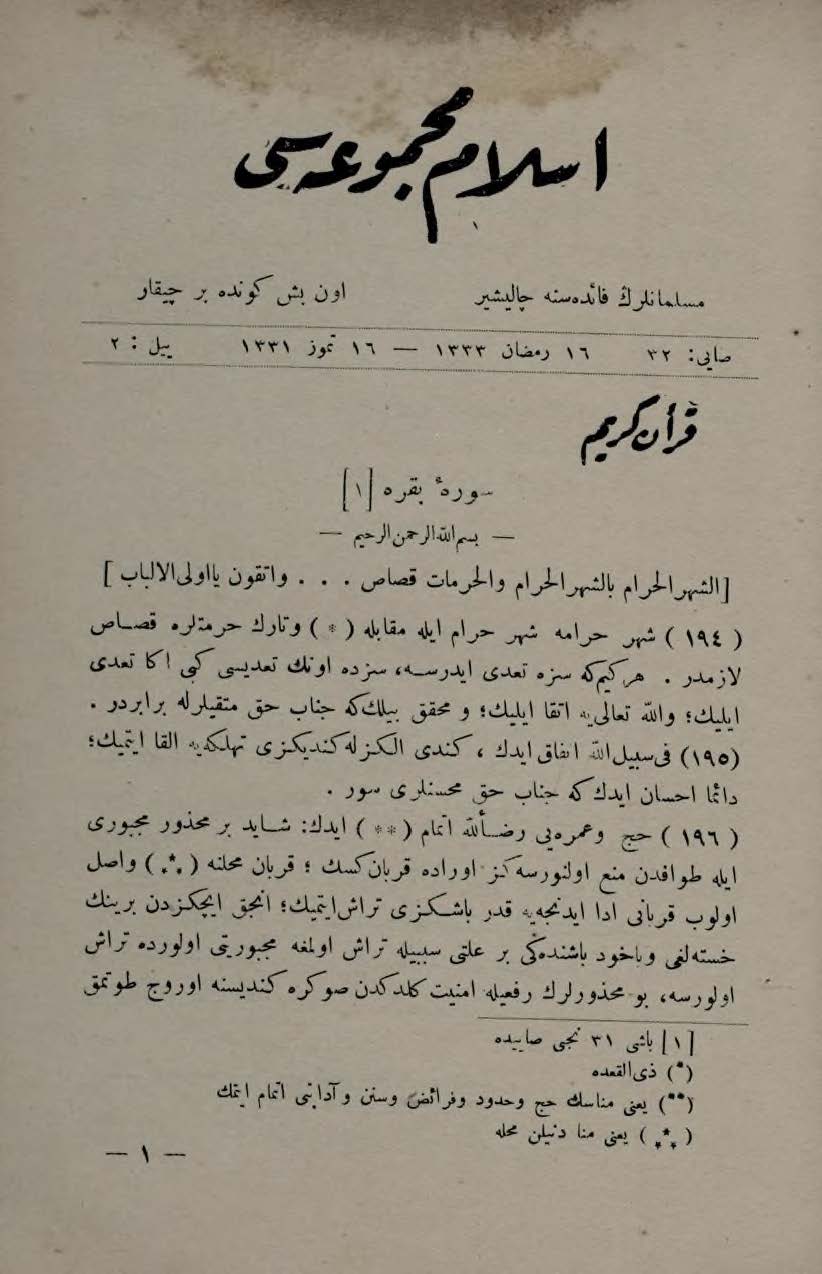 اسلام مجموعه‌سی
مسلمانلرڭ فائده‌سنه چالیشیر اون بش كونده بر چیقار
صایی: ٣٢ ١٦ رمضان ١٣٣٣ — ١٦ تموز ١٣٣١ ییل : ٢
قرأن كریم
سورهٔ بقره [١]
— بسم الله الرحمن الرحیم —
[الشهر الحرام بالشهر الحرام والحرمات قصاص . . . واتقون یااولی الالباب]
( ١٩٤ ) شهر حرامه شهر حرام ایله مقابله ( * ) وتارك حرمتلره قصاص
لازمدر . هركیم‌كه سزه تعدی ایدرسه، سزده اونك تعدیسی كبی اكا تعدی
ایلیك؛ والله تعالی‌یه اتقا ایلیك؛ و محقق بیلك‌كه جناب حق متقیلرله برابردر .
(١٩٥) فی سبیل الله انفاق ایدك ، كندی الكزله كندیكزی تهلكه‌یه القا ایتمیك؛
دائما احسان ایدك كه جناب حق محسنلری سور .
( ١٩٦ ) حج وعمره‌یی رضأً لله اتمام ( ** ) ایدك: شاید بر محذور مجبوری
ایله طوافدن منع اولنورسه‌كز اوراده قربان كسك ؛ قربان محلنه (***) واصل
اولوب قربانی ادا ایدنجه‌یه قدر باشكزی تراش ایتمیك؛ انجق ایچكزدن برینك
خسته‌لغی ویاخود باشنده‌كی بر علتی سببیله تراش اولمغه مجبوریتی اولورده تراش
اولورسه، بو محذورلرك رفعیله امنیت كلدكدن صوكره كندیسنه اوروج طوتمق
[١] باشی ٣١ نجی صاییده
(*) ذی القعده
(**) یعنی مناسك حج وحدود وفرائض وسنن وآدابنی اتمام ایتمك
(***) یعنی منا دنیلن محله
— ١ —